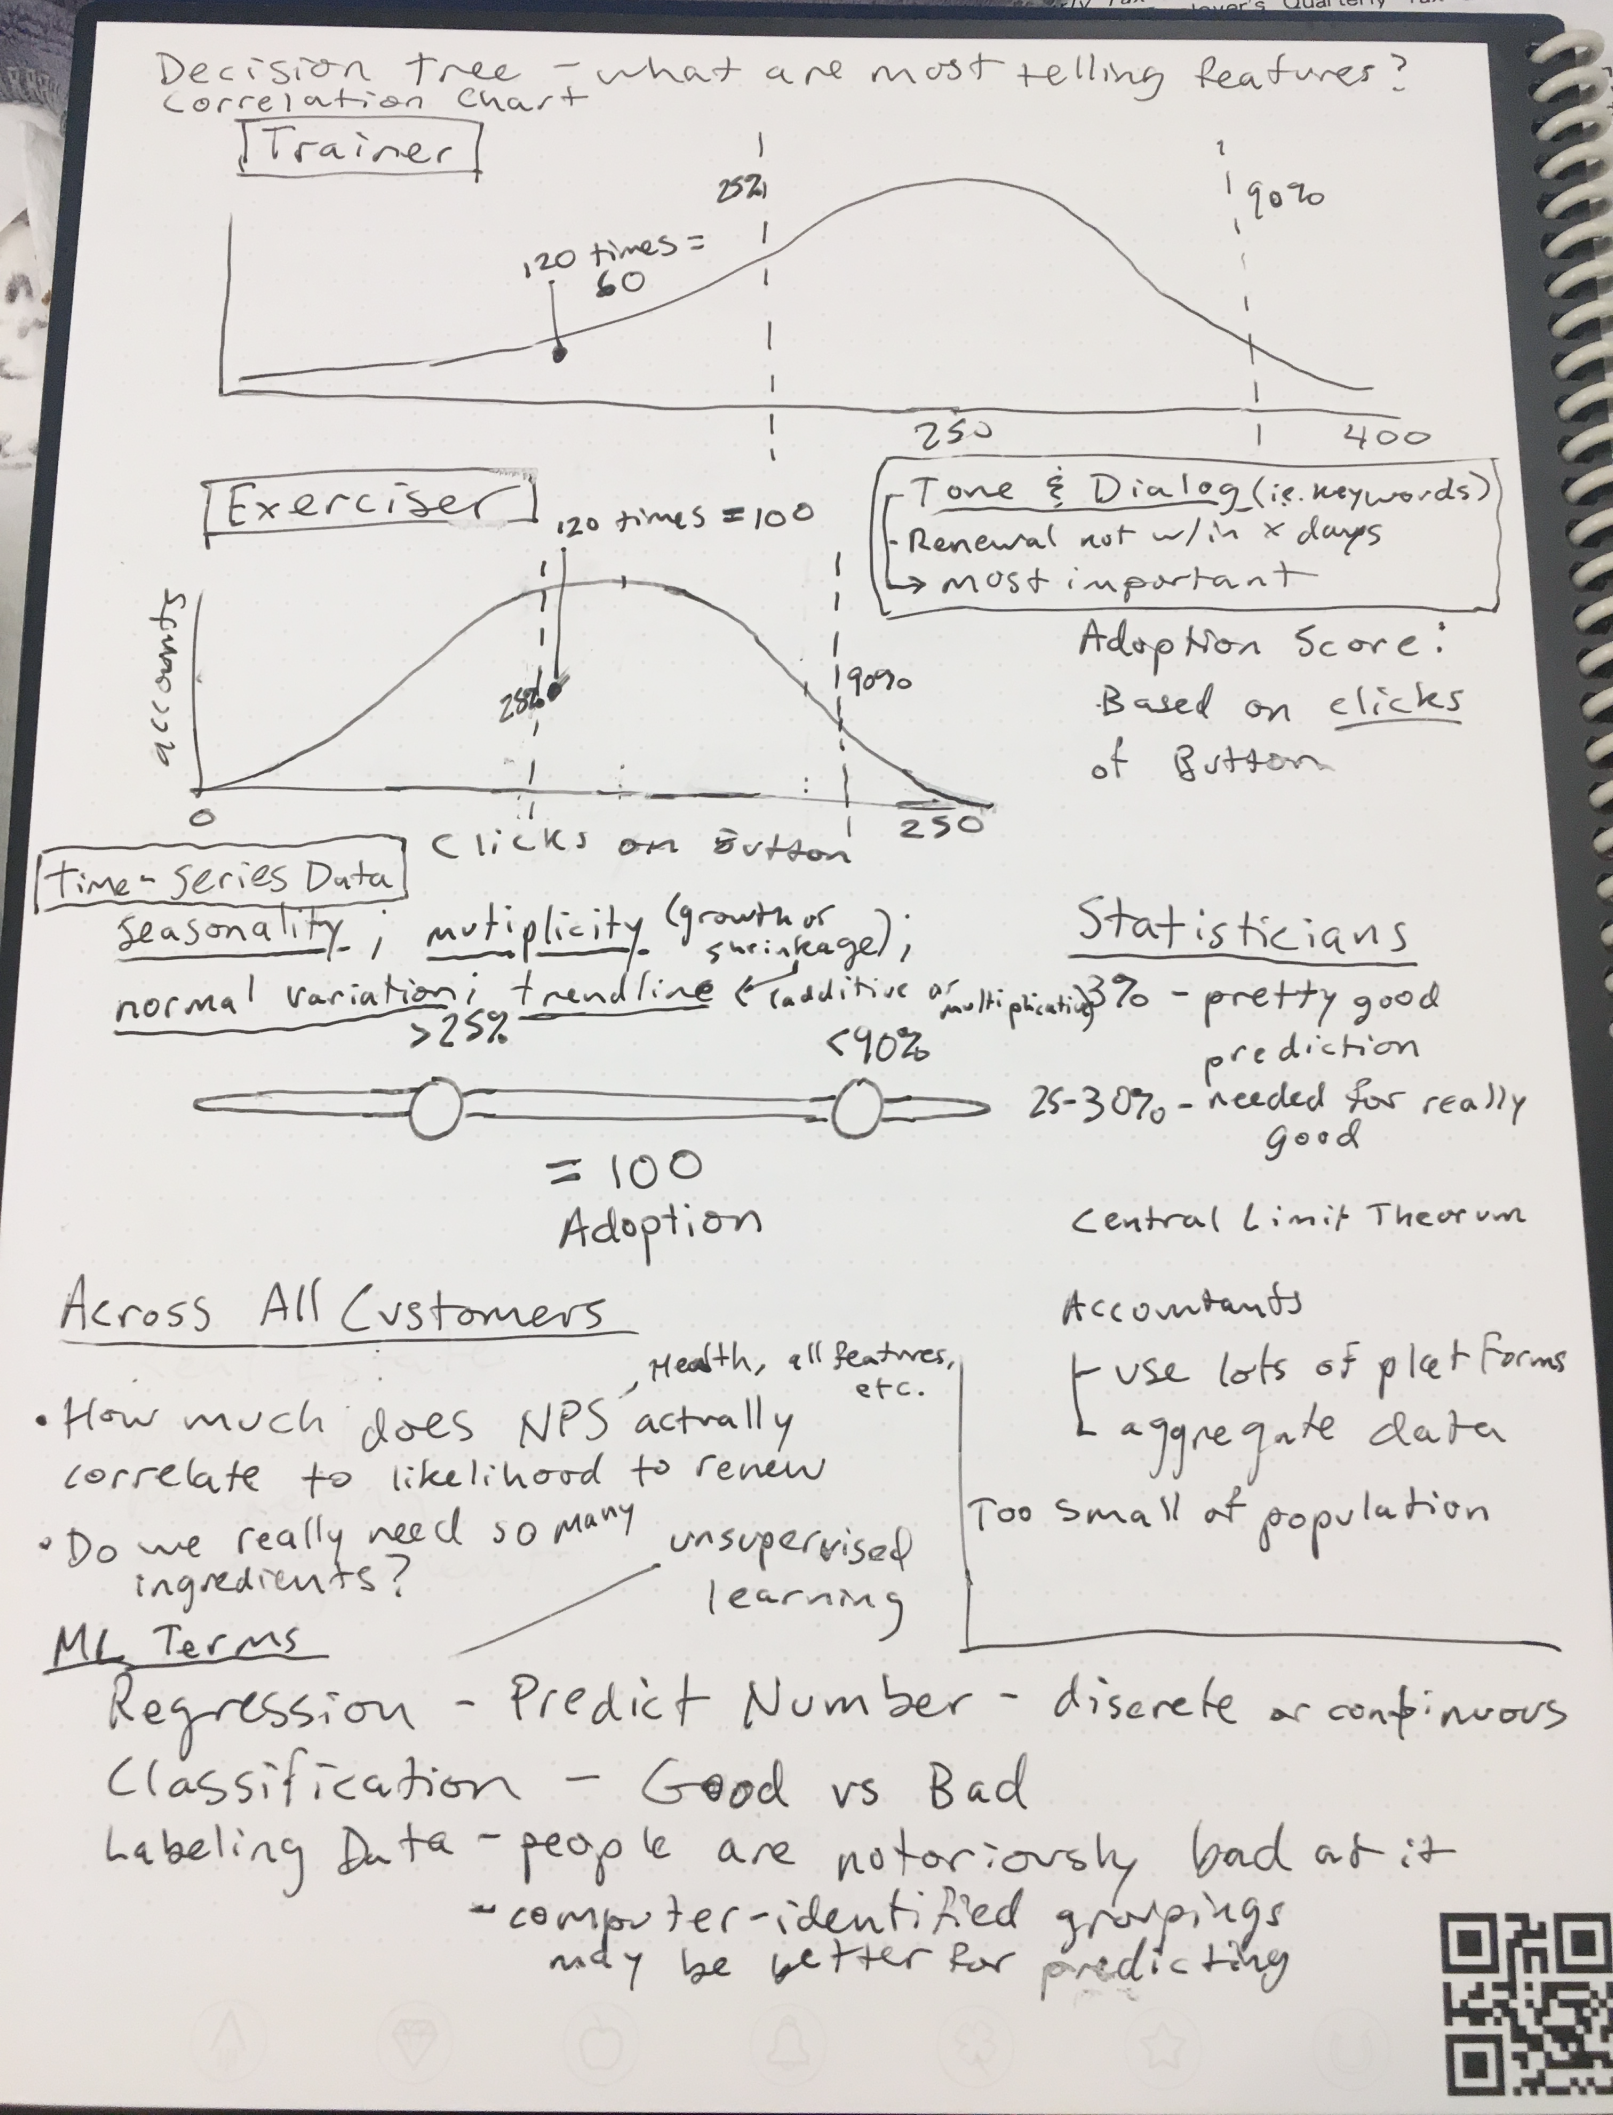 Quarterly
Decision tree - what are most telling features?
correlation chart
Trainer
25%
90%
120 times =
60
250
400
Exerciser
120 times = 100
Tone & Dialog (ie. keywords)
- Renewal not w/in x days
→ most important
accounts
25%
90%
0
250
Clicks on Button
Adoption Score:
Based on clicks
of Button
Time-series Data
seasonality; mutiplicity (growth or
shrinkage);
normal variation; trendline ← (additive or
multiplicative)
>25%
<90%
= 100
Adoption
Statisticians
3% - pretty good
prediction
25-30% - needed for really
good
Central Limit Theorum
Across All Customers
, Health, all features,
etc.
• How much does NPS actually
correlate to likelihood to renew
• Do we really need so many
ingredients?
unsupervised
learning
Accountants
- use lots of platforms
- aggregate data
Too small of population
ML Terms
Regression - Predict Number - discrete or continuous
Classification - Good vs Bad
Labeling Data - people are notoriously bad at it
- computer-identified groupings
may be better for predicting